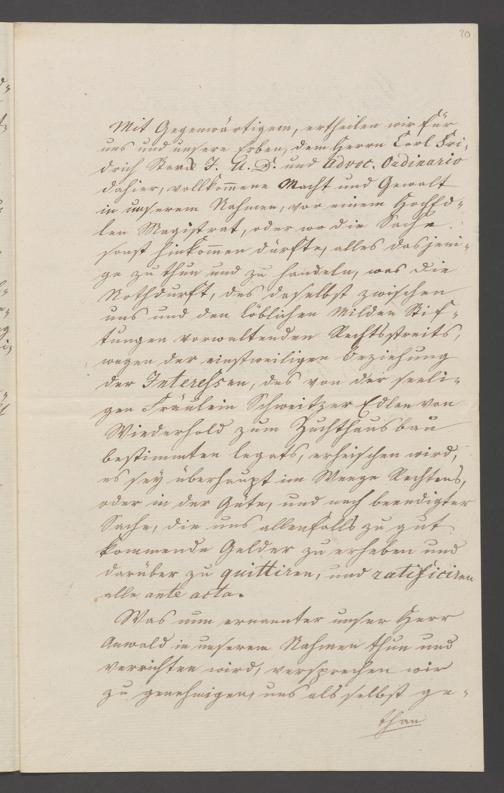 20
Mit Gegenwärtigem, ertheilen wir für
uns und unsere Erben, dem Herrn Carl Fri-
drich Starck J. U. D. und Advoc. Ordinario
dahier, vollkommene Macht und Gewalt
in unserem Nahmen, vor einem HochEd-
len Magistrat, oder wo die Sache
sonst hinkommen dürfte, alles dasjeni-
ge zu thun und zu handeln, was die
Nothdurft, des daselbst zwischen
uns und den löblichen Milden Stif-
tungen vorwaltenden Rechtsstreits,
wegen der einstweiligen Beziehung
der Interessen, des von der seeli-
gen Fräulein Schweitzer Edlen von
Wiederhold zum Zuchthausbau
bestimmten Legats, erheischen wird,
es sey überhaupt im Weege Rechtens,
oder in der Güte, und nach beendigter
Sache, die uns allenfalls zu gut
kommende Gelder zu erheben und
darüber zu quittiren, und ratificiren
alle ante acta.
Was nun ernannter unser Herr
Anwald in unserem Nahmen thun und
verrichten wird, versprechen wir
zu genehmigen, uns als selbst ge-
than